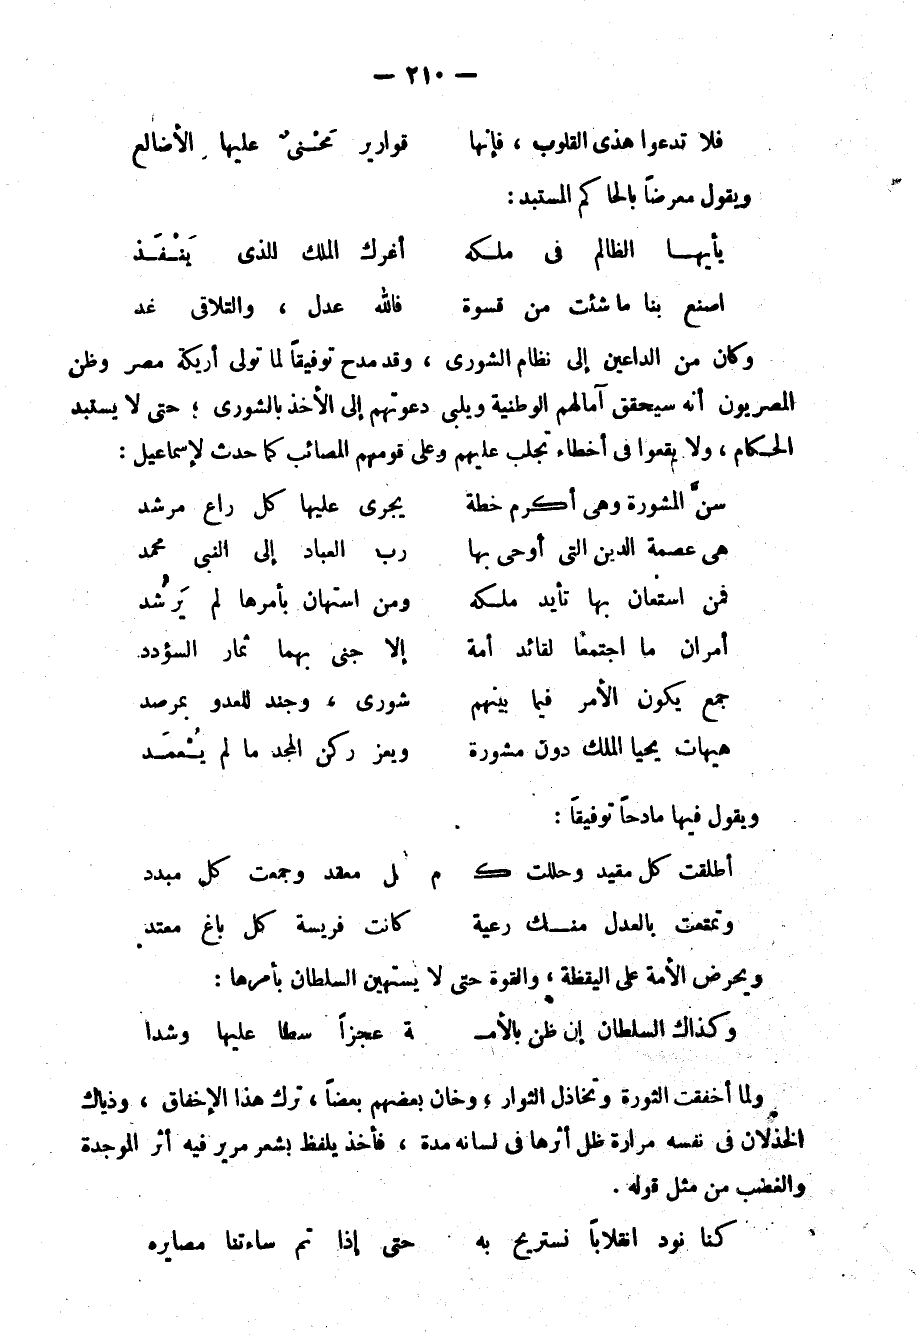 — ٢١٠ —
فلا تدعوا هذى القلوب ، فإنها قوارير تَحْنى عليها الأضالع
ويقول معرضاً بالحاكم المستبد :
يأيهـا الظالم فى ملكه أغرك الملك الذى يَنْفَـذ
اصنع بنا ما شئت من قسوة فالله عدل ، والتلاقى غد
وكان من الداعين إلى نظام الشورى ، وقد مدح توفيقاً لما تولى أريكة مصر وظن
المصريون أنه سيحقق آمالهم الوطنية ويلبى دعوتهم إلى الأخذ بالشورى ؛ حتى لا يستبد
الحكام ، ولا يقعوا فى أخطاء تجلب عليهم وعلى قومهم المصائب كما حدث لإسماعيل :
سنَّ المشورة وهى أكرم خطة يجرى عليها كل راع مرشد
هى عصمة الدين التى أوحى بها رب العباد إلى النبى محمد
فمن استعان بها تأيد ملكه ومن استهان بأمرها لم يَرْشُد
أمران ما اجتمعا لقائد أمة إلا جنى بهما ثمار السؤدد
جمع يكون الأمر فيما بينهم شورى ، وجند للعدو بمرصد
هيهات يحيا الملك دون مشورة ويعز ركن المجد ما لم يُعْمَـد
ويقول فيها مادحاً توفيقاً :
أطلقت كل مقيد وحللت كـ م ـل معقد وجمعت كل مبدد
وتمتعت بالعدل منـك رعية كانت فريسة كل باغ معتد
ويحرض الأمة على اليقظة ، والقوة حتى لا يستهين السلطان بأمرها :
وكذاك السلطان إن ظن بالأمـ ـة عجزاً سطا عليها وشدا
ولما أخفقت الثورة وتخاذل الثوار ، وخان بعضهم بعضاً ، ترك هذا الإخفاق ، وذياك
الخذلان فى نفسه مرارة ظل أثرها فى لسانه مدة ، فأخذ يلفظ بشعر مرير فيه أثر الموجدة
والغضب من مثل قوله .
كنا نود انقلاباً نستريح به حتى إذا تم ساءتنا مصايره